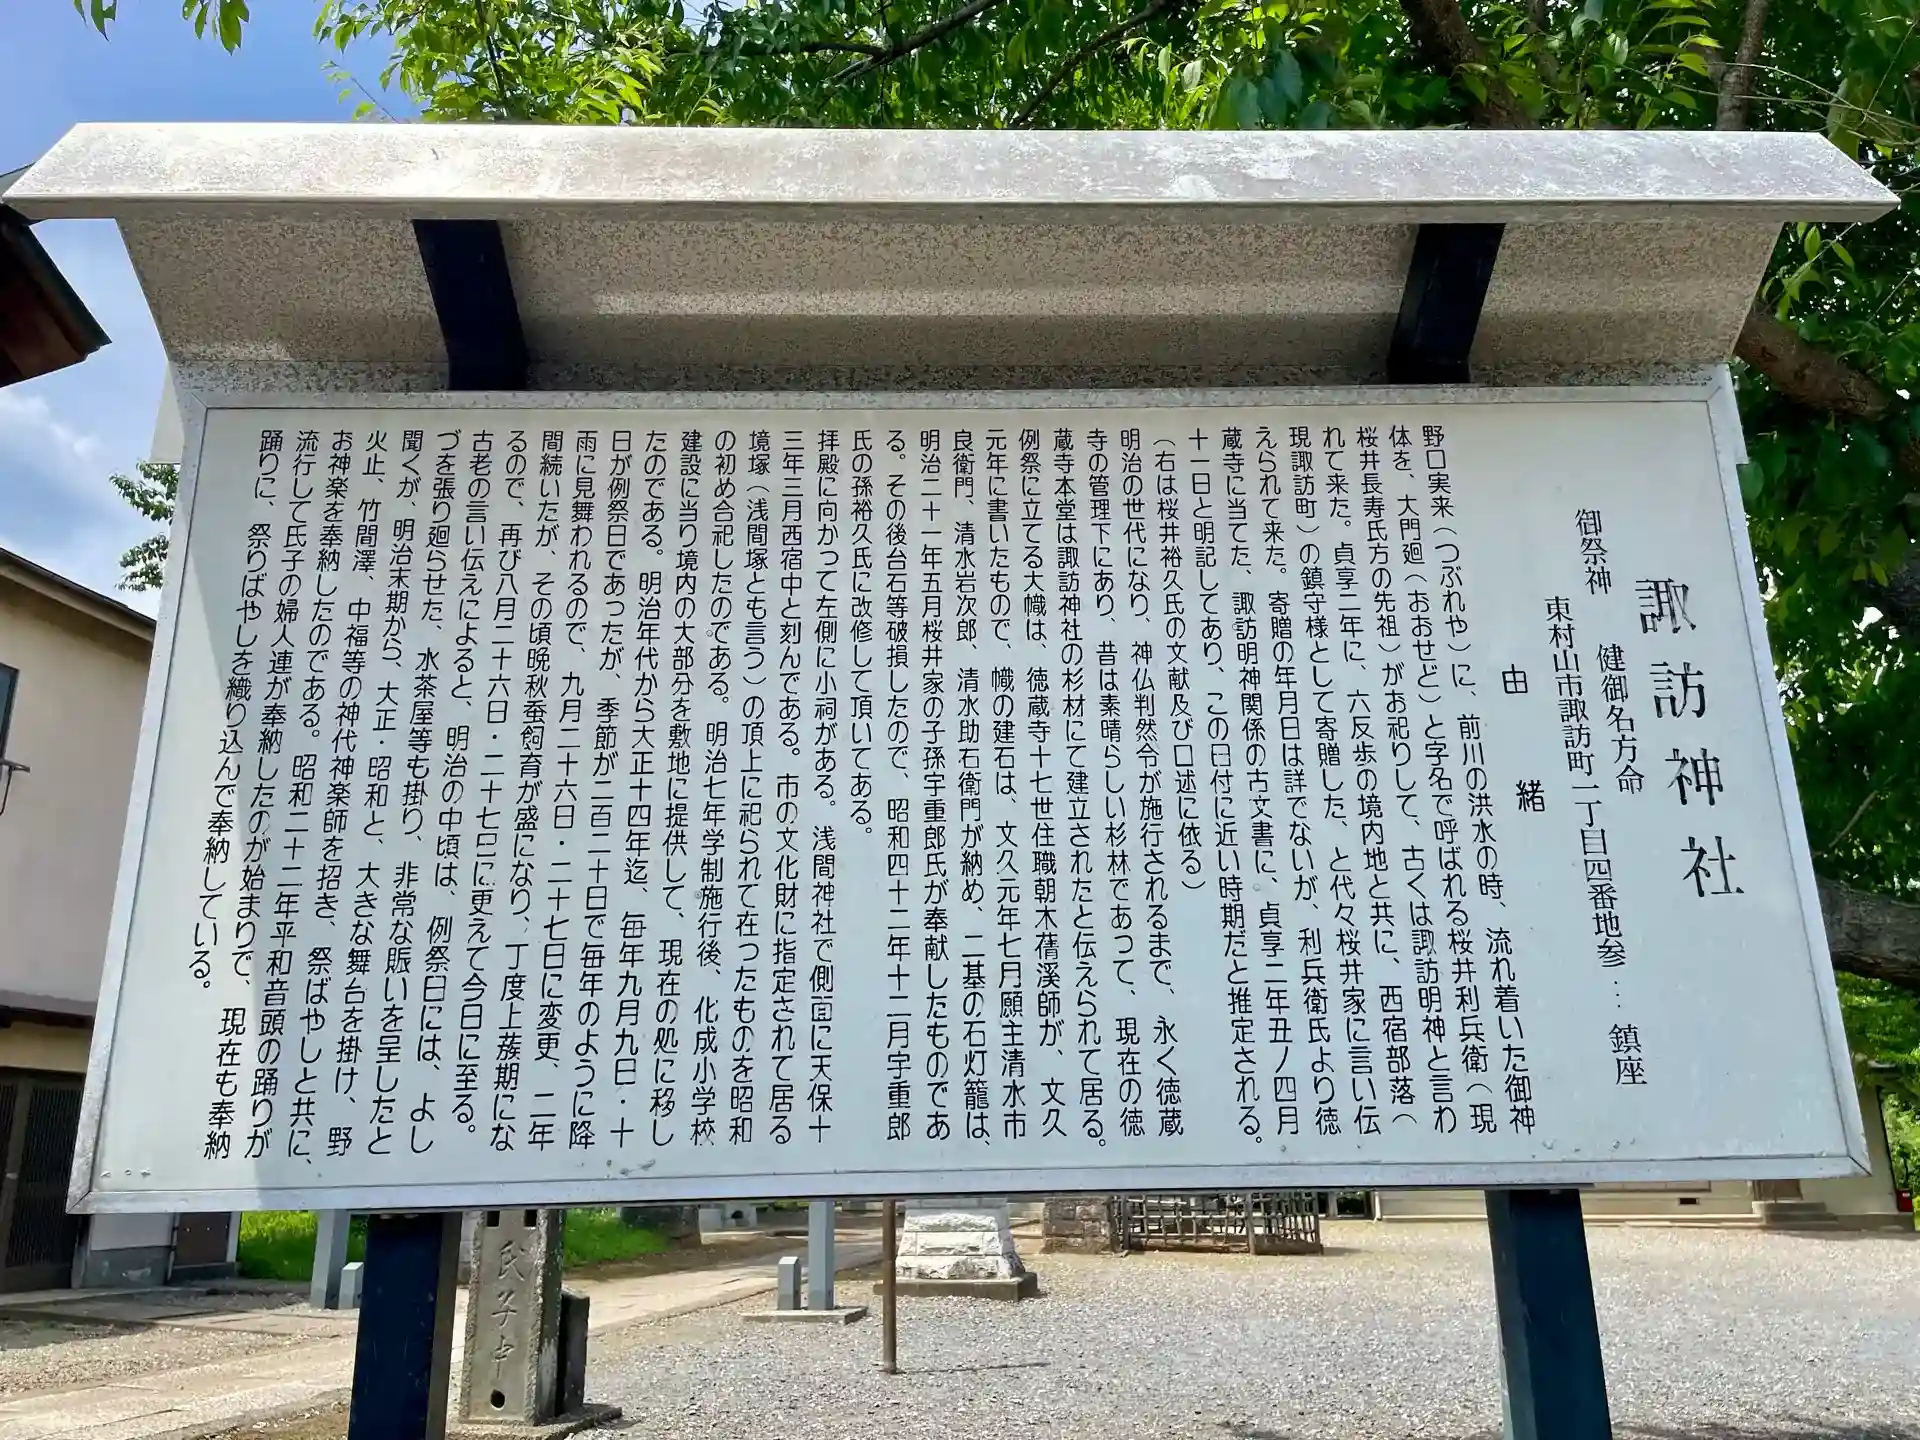 諏訪神社
御祭神 健御名方命
東村山市諏訪町一丁目四番地参… 鎮座
由緒
野口実来（つぶれや）に、前川の洪水の時、流れ着いた御神
体を、大門廻（おおせど）と字名で呼ばれる桜井利兵衛（現
桜井長寿氏方の先祖）がお祀りして、古くは諏訪明神と言わ
れて来た。貞享二年に、六反歩の境内地と共に、西宿部落（
現諏訪町）の鎮守様として寄贈した、と代々桜井家に言い伝
えられて来た。寄贈の年月日は詳でないが、利兵衛氏より徳
蔵寺に当てた、諏訪明神関係の古文書に、貞享二年丑ノ四月
十一日と明記してあり、この日付に近い時期だと推定される。
（右は桜井裕久氏の文献及び口述に依る）
明治の世代になり、神仏判然令が施行されるまで、永く徳蔵
寺の管理下にあり、昔は素晴らしい杉林であって、現在の徳
蔵寺本堂は諏訪神社の杉材にて建立されたと伝えられて居る。
例祭に立てる大幟は、徳蔵寺十七世住職朝木蒨溪師が、文久
元年に書いたもので、幟の建石は、文久元年七月願主清水市
良衛門、清水岩次郎、清水助右衛門が納め、二基の石灯籠は、
明治二十一年五月桜井家の子孫宇重郎氏が奉献したものであ
る。その後台石等破損したので、昭和四十二年十二月宇重郎
氏の孫裕久氏に改修して頂いてある。
拝殿に向かって左側に小祠がある。浅間神社で側面に天保十
三年三月西宿中と刻んである。市の文化財に指定されて居る
境塚（浅間塚とも言う）の頂上に祀られて在ったものを昭和
の初め合祀したのである。明治七年学制施行後、化成小学校
建設に当り境内の大部分を敷地に提供して、現在の処に移し
たのである。明治年代から大正十四年迄、毎年九月九日・十
日が例祭日であったが、季節が二百二十日で毎年のように降
雨に見舞われるので、九月二十六日・二十七日に変更、二年
間続いたが、その頃晩秋蚕飼育が盛になり、丁度上蔟期にな
るので、再び八月二十六日・二十七日に更えて今日に至る。
古老の言い伝えによると、明治の中頃は、例祭日には、よし
づを張り廻らせた、水茶屋等も掛り、非常な賑いを呈したと
聞くが、明治末期から、大正・昭和と、大きな舞台を掛け、野
火止、竹間澤、中福等の神代神楽師を招き、祭ばやしと共に、
お神楽を奉納したのである。昭和二十二年平和音頭の踊りが
流行して氏子の婦人連が奉納したのが始まりで、現在も奉納
踊りに、祭りばやしを織り込んで奉納している。
氏子中